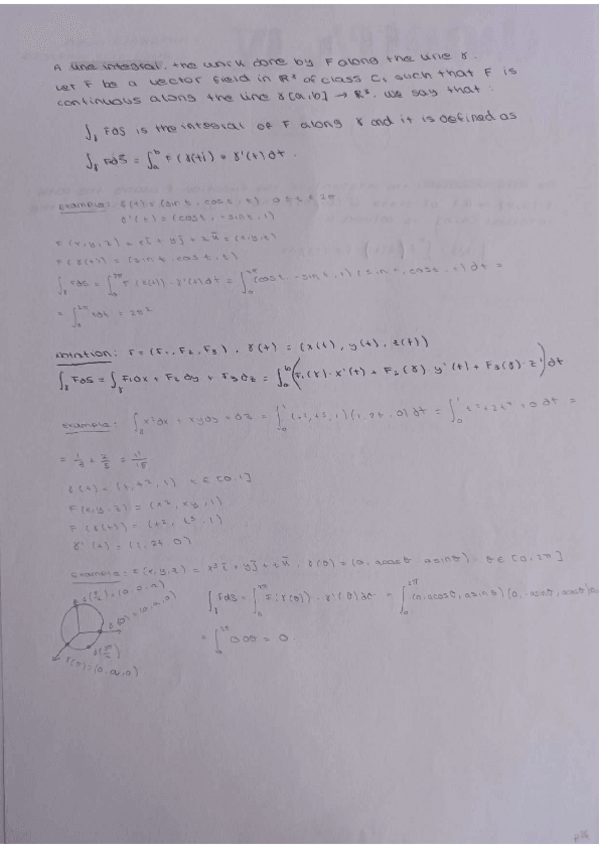 A line integral, the work done by F along the line γ.
Let F be a vector field in R³ of class C, such that F is
continuous along the line γ[a,b] → R³. We say that:
∫γ FdS is the integral of F along γ and it is defined as
∫γ FdS = ∫ₐᵇ F(γ(t)) · γ'(t)dt.
Example: γ(t) = (sin t, cos t, t), 0 ≤ t ≤ 2π
γ'(t) = (cos t, -sin t, 1)
F(x,y,z) = xī + yj̄ + zk̄ = (x,y,z)
F(γ(t)) = (sin t, cos t, t)
∫γ FdS = ∫₀²π F(γ(t)) · γ'(t)dt = ∫₀²π (cos t, -sin t, 1)(sin t, cos t, t)dt =
= ∫₀²π tdt = 2π²
notation: F = (F₁, F₂, F₃), γ(t) = (x(t), y(t), z(t))
∫γ FdS = ∫γ F₁dx + F₂dy + F₃dz = ∫ₐᵇ (F₁(γ)·x'(t) + F₂(γ)·y'(t) + F₃(γ)·z')dt
Example: ∫γ x²dx + xydy + dz = ∫₀¹ (t², t³, 1)(1, 2t, 0)dt = ∫₀¹ t² + 2t⁴ + 0 dt =
= 1/3 + 2/5 = 11/15
γ(t) = (t, t², 1) t ∈ [0,1]
F(x,y,z) = (x², xy, 1)
F(γ(t)) = (t², t³, 1)
γ'(t) = (1, 2t, 0)
Example: F(x,y,z) = x³ī + yj̄ + zk̄, γ(θ) = (0, acosθ, asinθ), θ ∈ [0, 2π]
γ(π/2) = (0,0,a)
∫γ FdS = ∫₀²π F(γ(θ)) · γ'(θ)dθ = ∫₀²π (0, acosθ, asinθ)(0, -asinθ, acosθ)
= ∫₀²π 0dθ = 0
γ(0) = (0,a,0)